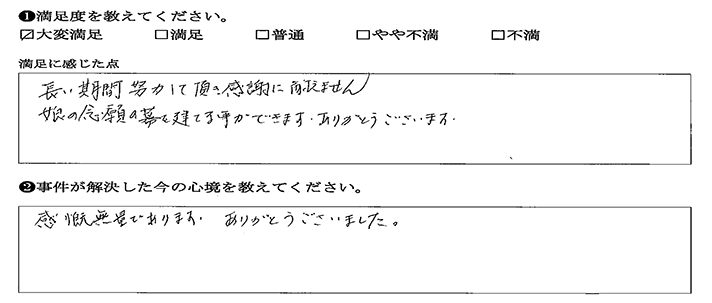 ❶満足度を教えてください。
☑大変満足 □満足 □普通 □やや不満 □不満
満足に感じた点
長い期間努力して頂き感謝に耐えません
娘の念願の墓を建てる事ができます。ありがとうございます。
❷事件が解決した今の心境を教えてください。
感慨無量であります。 ありがとうございました。